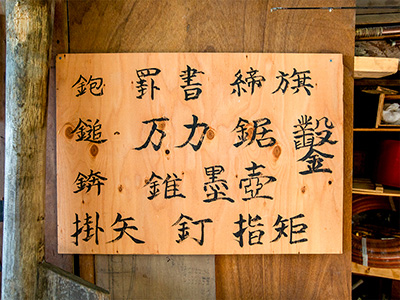 鉋 罫書 締旗
鎚 万力 鋸 鑿
錛 錐 墨壺
掛矢 釘 指矩